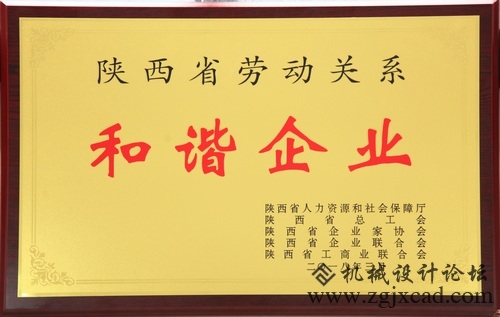 陕西省劳动关系
和谐企业
陕西省人力资源和社会保障厅
陕西省总工会
陕西省企业家协会
陕西省企业联合会
陕西省工商业联合会
二〇一八年三月
机械设计论坛
www.zgjxcad.com